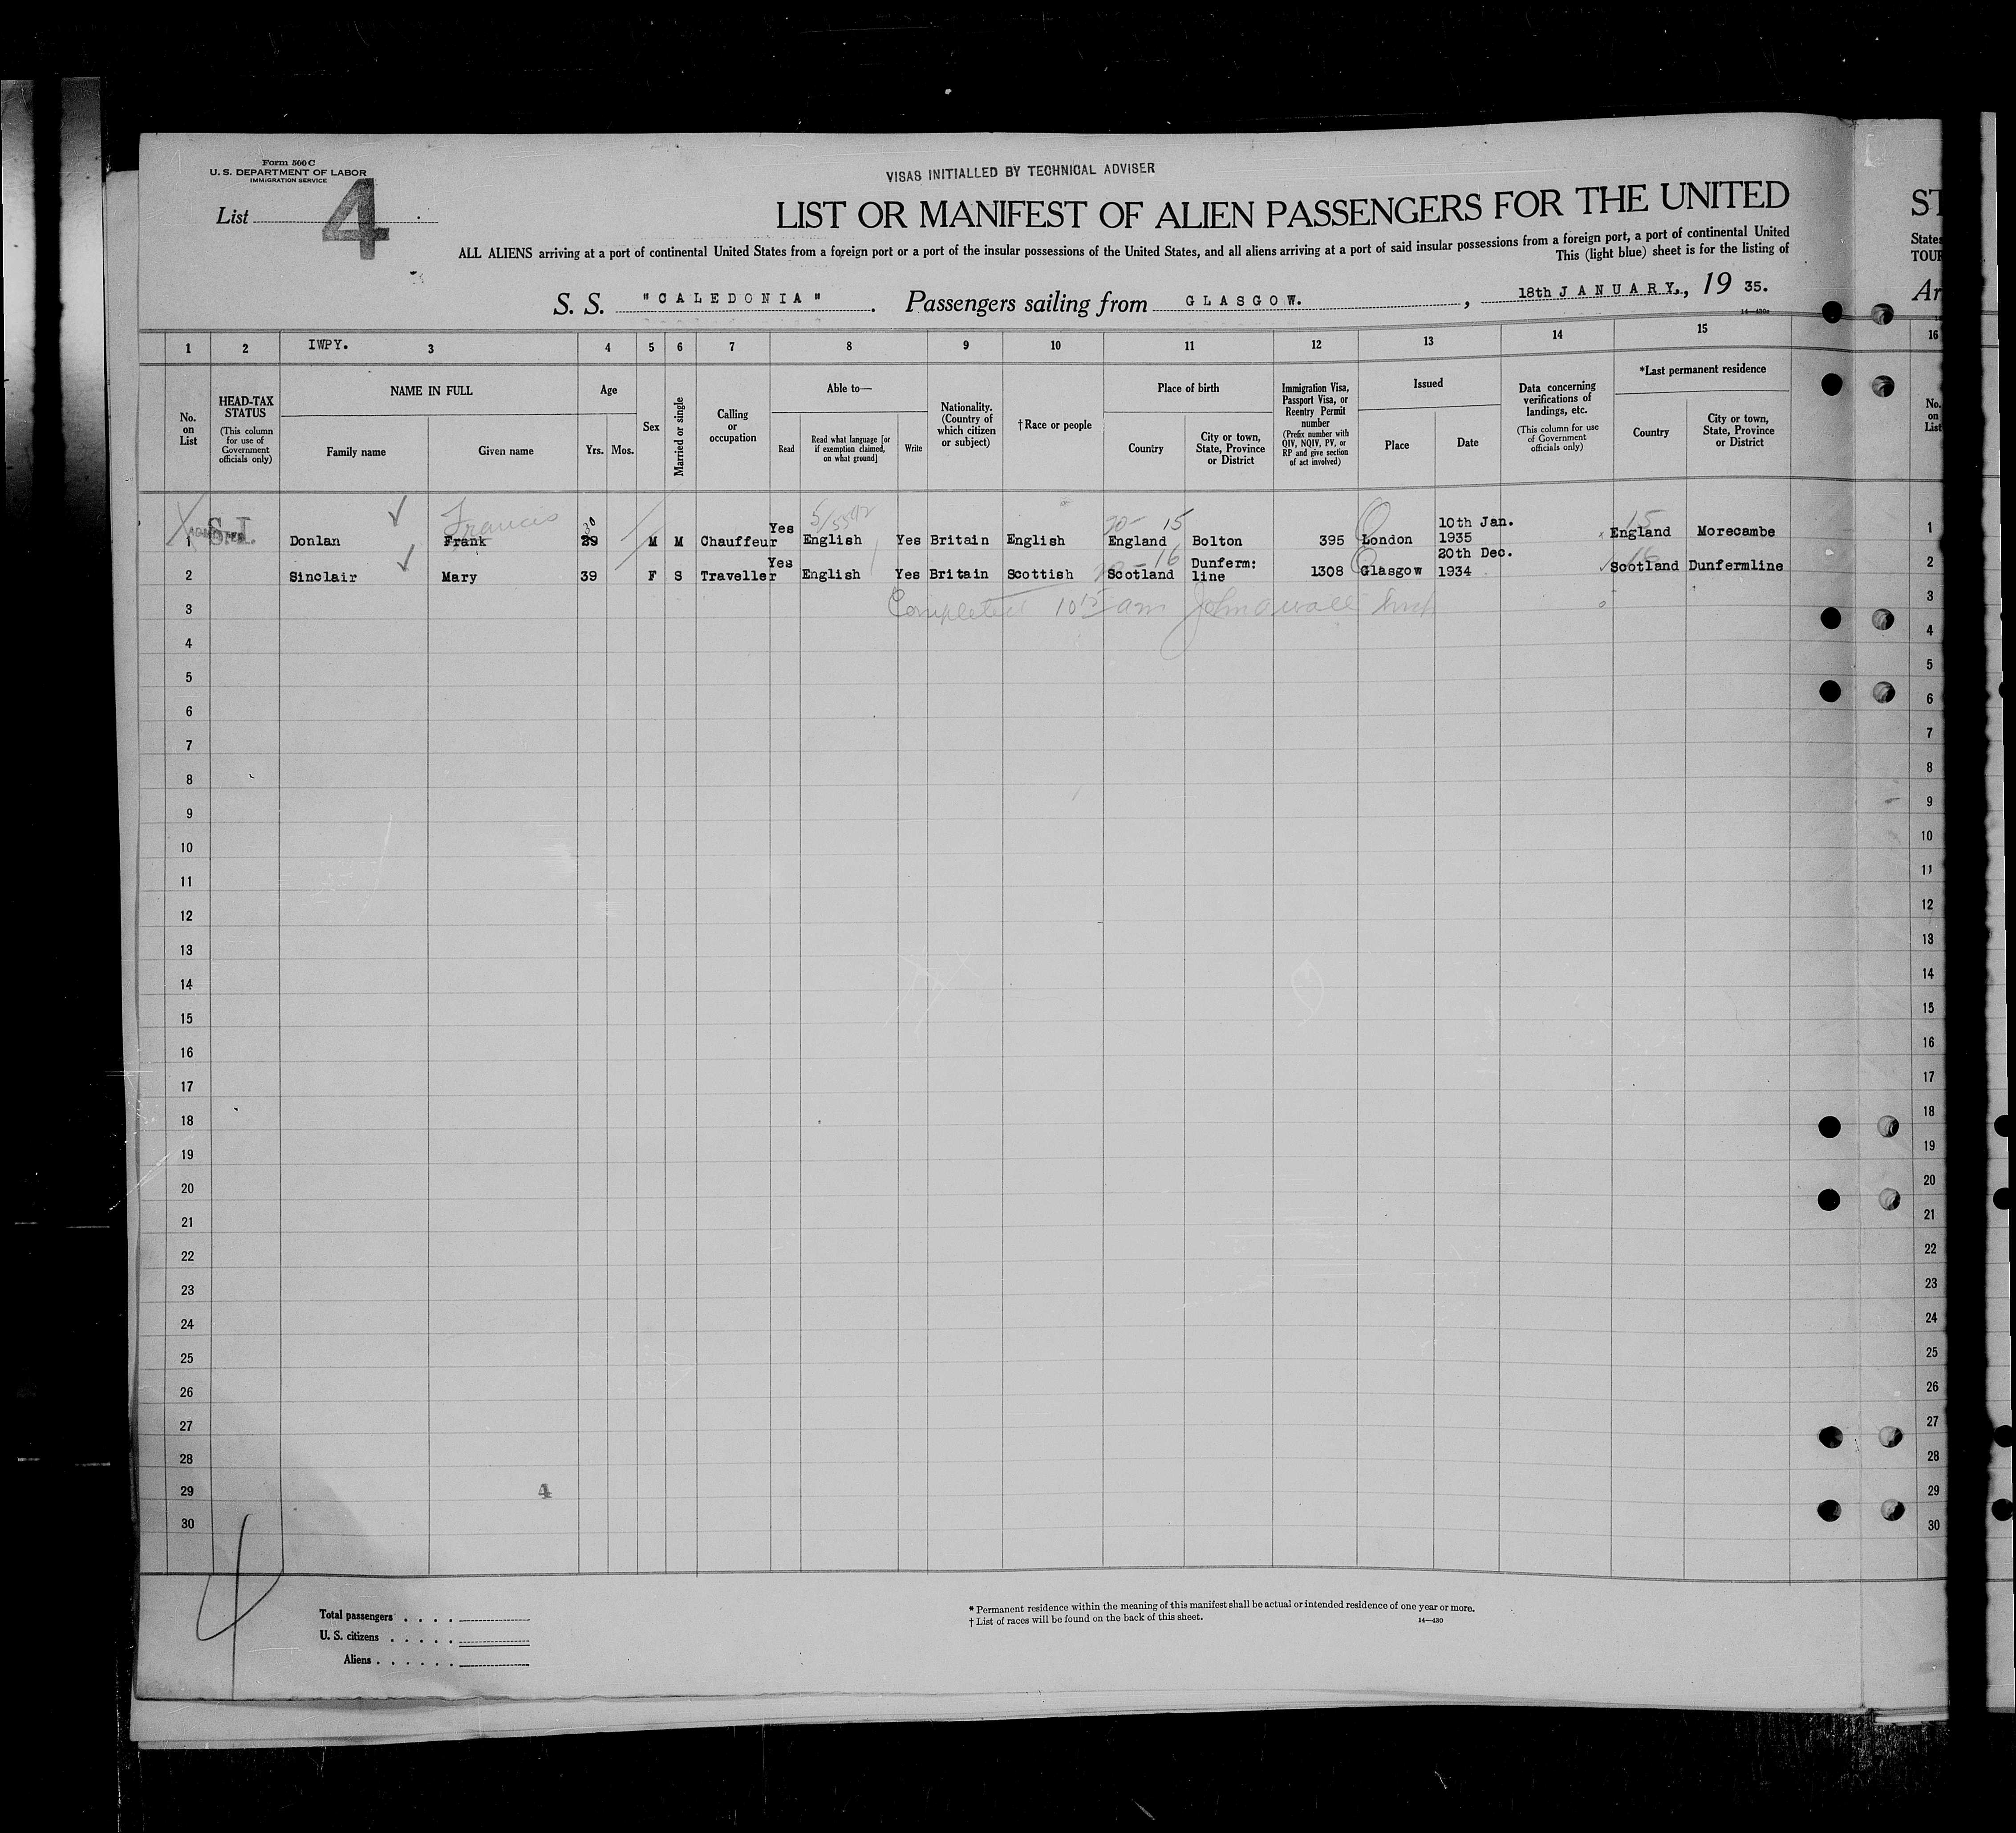 Form 500 C
U. S. DEPARTMENT OF LABOR
IMMIGRATION SERVICE
List 4
VISAS INITIALLED BY TECHNICAL ADVISER
LIST OR MANIFEST OF ALIEN PASSENGERS FOR THE UNITED
ALL ALIENS arriving at a port of continental United States from a foreign port or a port of the insular possessions of the United States, and all aliens arriving at a port of said insular possessions from a foreign port, a port of continental United
This (light blue) sheet is for the listing of
S. S. "CALEDONIA". Passengers sailing from GLASGOW. , 18th JANUARY., 19 35.
14—430a
ST
States
TOUR
Ar
1 2 IWPY. 3 4 5 6 7 8 9 10 11 12 13 14 15 16
No. on List
HEAD-TAX STATUS
(This column for use of Government officials only)
NAME IN FULL
Family name
Given name
Age
Yrs. Mos.
Sex
Married or single
Calling or occupation
Able to—
Read
Read what language [or if exemption claimed, on what ground]
Write
Nationality. (Country of which citizen or subject)
†Race or people
Place of birth
Country
City or town, State, Province or District
Immigration Visa, Passport Visa, or Reentry Permit number
(Prefix number with QIV, NQIV, PV, or RP and give section of act involved)
Issued
Place
Date
Data concerning verifications of landings, etc.
(This column for use of Government officials only)
*Last permanent residence
Country
City or town, State, Province or District
No. on List
1 S.I. Donlan Frank Francis 29 30 M M Chauffeur Yes English Yes Britain English England Bolton 395 London 10th Jan. 1935 England Morecambe 1
20- 15 15
2 Sinclair Mary 39 F S Traveller Yes English Yes Britain Scottish Scotland Dunferm: line 1308 Glasgow 20th Dec. 1934 Scotland Dunfermline 2
16 16
3 Completed 10 am 3
4 4
5 5
6 6
7 7
8 8
9 9
10 10
11 11
12 12
13 13
14 14
15 15
16 16
17 17
18 18
19 19
20 20
21 21
22 22
23 23
24 24
25 25
26 26
27 27
28 28
29 4 29
30 30
4
Total passengers . . . .
U. S. citizens . . . . .
Aliens . . . . . .
* Permanent residence within the meaning of this manifest shall be actual or intended residence of one year or more.
† List of races will be found on the back of this sheet.
14—430